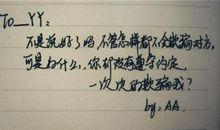 To__YY:
不是说好了吗 不管怎样都不会欺骗对方。
可是为什么，你却没有遵守约定
一次次的欺骗我？
by：AA.